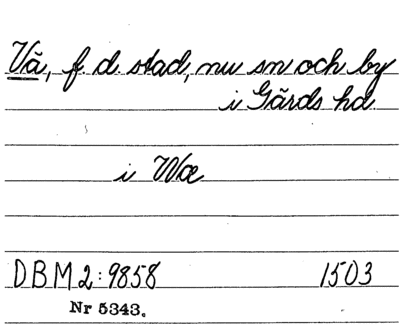 Vä, f. d. stad, nu sn och by
i Gärds hd
i Wæ
DBM 2:9858 1503
Nr 5343.